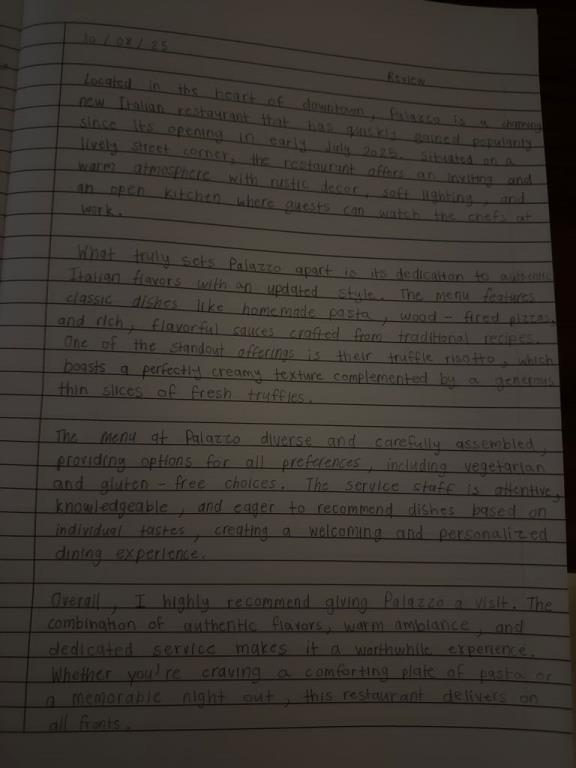 10 / 08 / 25
Review
Located in the heart of downtown, Palazzo is a charming
new Italian restaurant that has quickly gained popularity
since its opening in early July 2025. Situated on a
lively street corner, the restaurant offers an inviting and
warm atmosphere with rustic decor, soft lighting, and
an open kitchen where guests can watch the chefs at
work.
What truly sets Palazzo apart is its dedication to authentic
Italian flavors with an updated style. The menu features
classic dishes like homemade pasta, wood - fired pizzas,
and rich, flavorful sauces crafted from traditional recipes.
One of the standout offerings is their truffle risotto, which
boasts a perfectly creamy texture complemented by a generous
thin slices of fresh truffles.
The menu at Palazzo diverse and carefully assembled,
providing options for all preferences, including vegetarian
and gluten - free choices. The service staff is attentive,
knowledgeable, and eager to recommend dishes based on
individual tastes, creating a welcoming and personalized
dining experience.
Overall, I highly recommend giving Palazzo a visit. The
combination of authentic flavors, warm ambiance, and
dedicated service makes it a worthwhile experience.
Whether you're craving a comforting plate of pasta or
a memorable night out, this restaurant delivers on
all fronts.